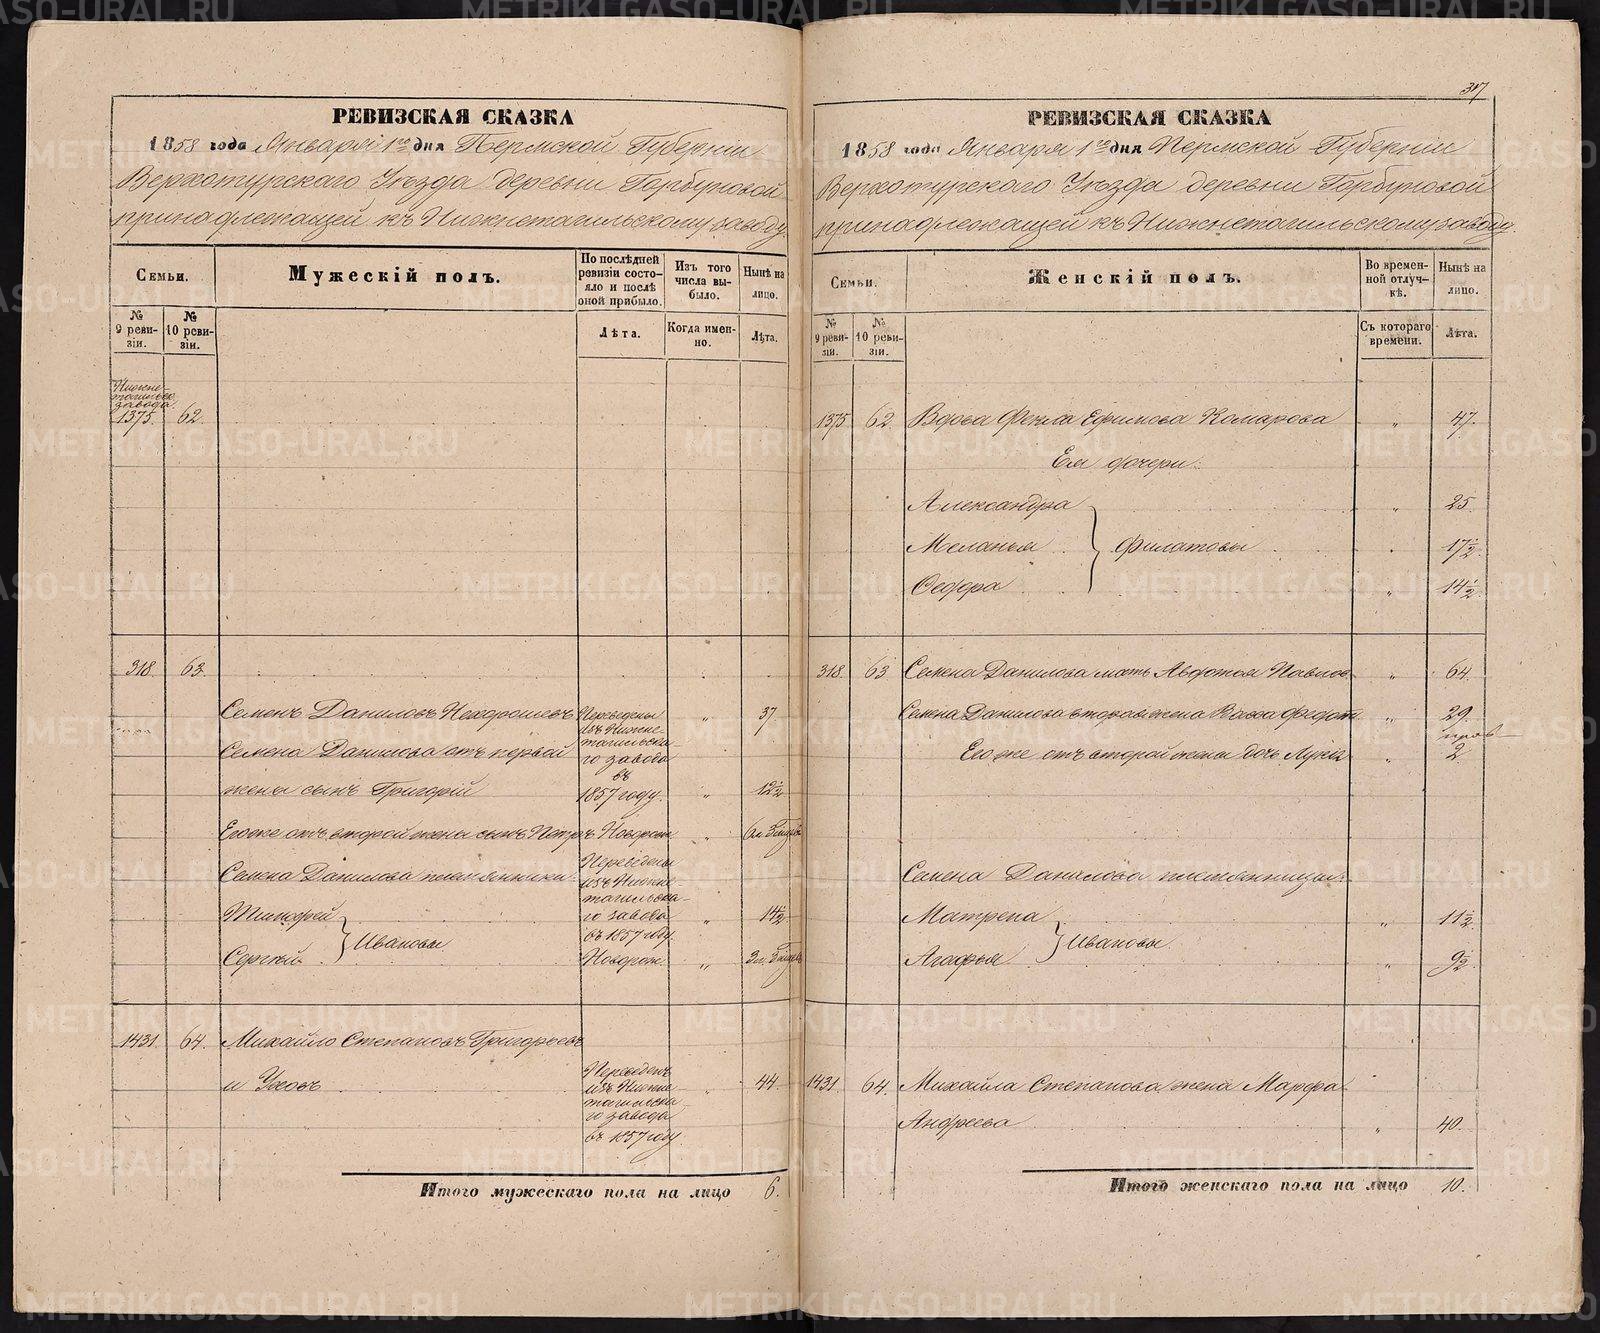 РЕВИЗСКАЯ СКАЗКА
1858 года Января 1го дня Пермской Губернiи
Верхотурскаго Уѣзда деревни Горбуновой
принадлежащей къ Нижнетагильскому заводу
Семьи.
Мужескiй полъ.
По послѣдней ревизiи состояло и послѣ оной прибыло.
Изъ того числа выбыло.
Нынѣ на лицо.
№ 9 ревизiи.
№ 10 ревизiи.
Лѣта.
Когда именно.
Лѣта.
Нижнетагильск. завода
1375. 62.
318. 63.
Семенъ Даниловъ Нехорошевъ Переведены изъ Нижнетагильскаго завода въ 1857 году. „ 37
Семена Данилова отъ первой
жены сынъ Григорiй „ 12½
Егоже отъ второй жены сынъ Петръ Новорож. „
Семена Данилова племянники:
Тимофей } Ивановы Переведены изъ Нижнетагильскаго завода въ 1857 году. „ 14½
Сергѣй Новорож. „
1431. 64. Михайло Степановъ Григорьевъ
и Уховъ Переведенъ изъ Нижнетагильскаго завода въ 1857 году „ 44
Итого мужескаго пола на лицо 6.
РЕВИЗСКАЯ СКАЗКА
1858 года Января 1го дня Пермской Губернiи
Верхотурскаго Уѣзда деревни Горбуновой
принадлежащей къ Нижнетагильскому заводу
Семьи.
Женскiй полъ.
Во временной отлучкѣ.
Нынѣ на лицо.
№ 9 ревизiи.
№ 10 ревизiи.
Съ котораго времени.
Лѣта.
1375 62 Вдова Фекла Ефимова Комарова „ 47.
Ея дочери:
Александра „ 25.
Меланья } Филатовы „ 17½
Федора „ 14½
318. 63 Семена Данилова мать Авдотья Павлов. „ 64.
Семена Данилова вторая жена Васса Федот. „ 29.
Его же отъ второй жены дочь Лукея „ 2
Семена Данилова племянницы:
Матрена } Ивановы „ 11½
Агафья „ 9½
1431. 64. Михайла Степанова жена Марфа
Андреева „ 40.
Итого женскаго пола на лицо 10.
METRIKI.GASO-URAL.RU